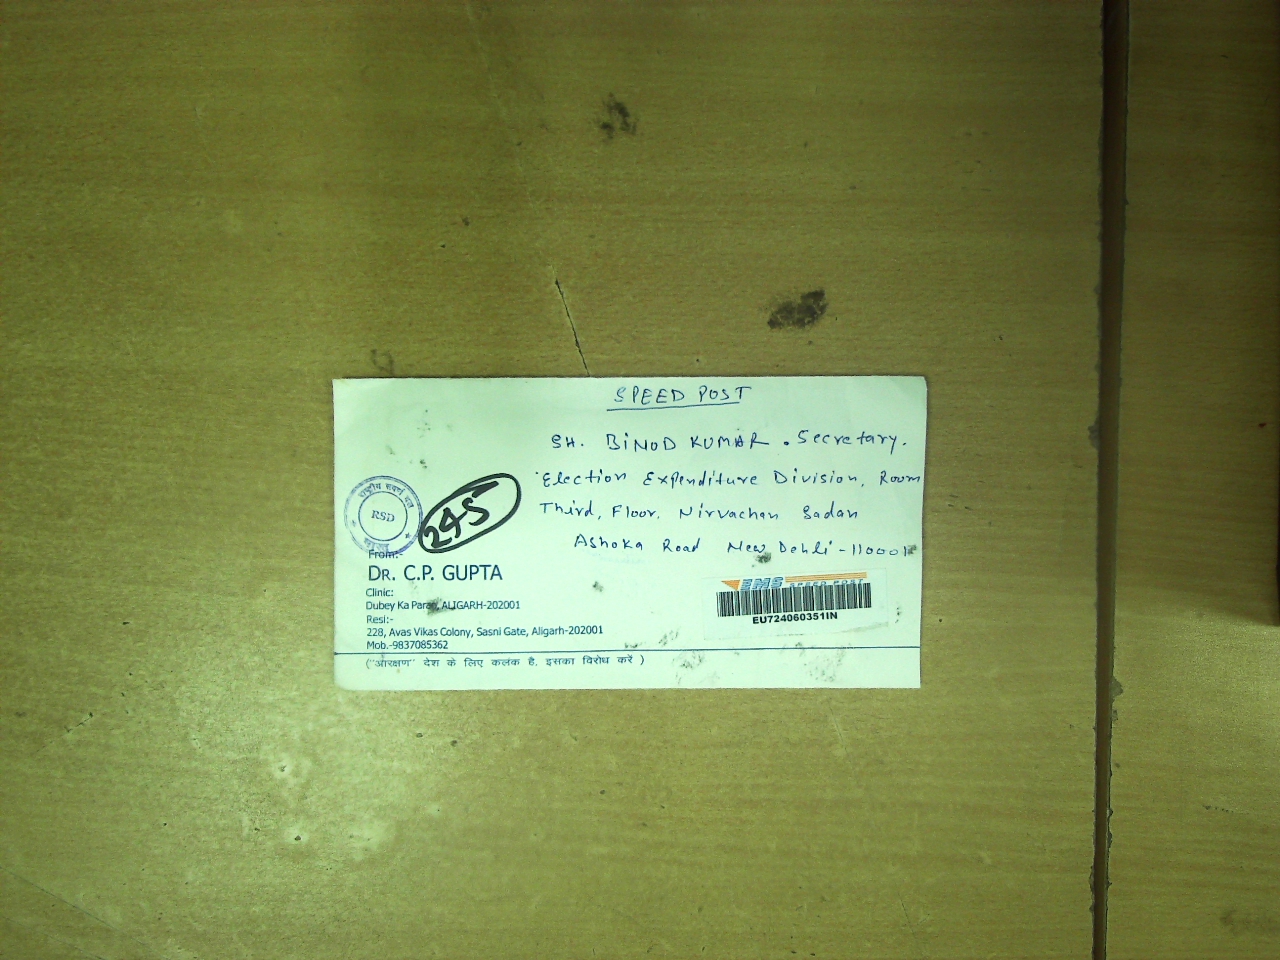 SPEED POST
SH. BINOD KUMAR . Secretary.
Election Expenditure Division, Room
Third, Floor, Nirvachan Sadan
Ashoka Road New Dehli - 110001
राष्ट्रीय सवर्ण दल
RSD
245
From:-
DR. C.P. GUPTA
Clinic:
Dubey Ka Parao, ALIGARH-202001
Resi:-
228, Avas Vikas Colony, Sasni Gate, Aligarh-202001
Mob.-9837085362
EMS SPEED POST
EU724060351IN
("आरक्षण" देश के लिए कलंक है, इसका विरोध करें )